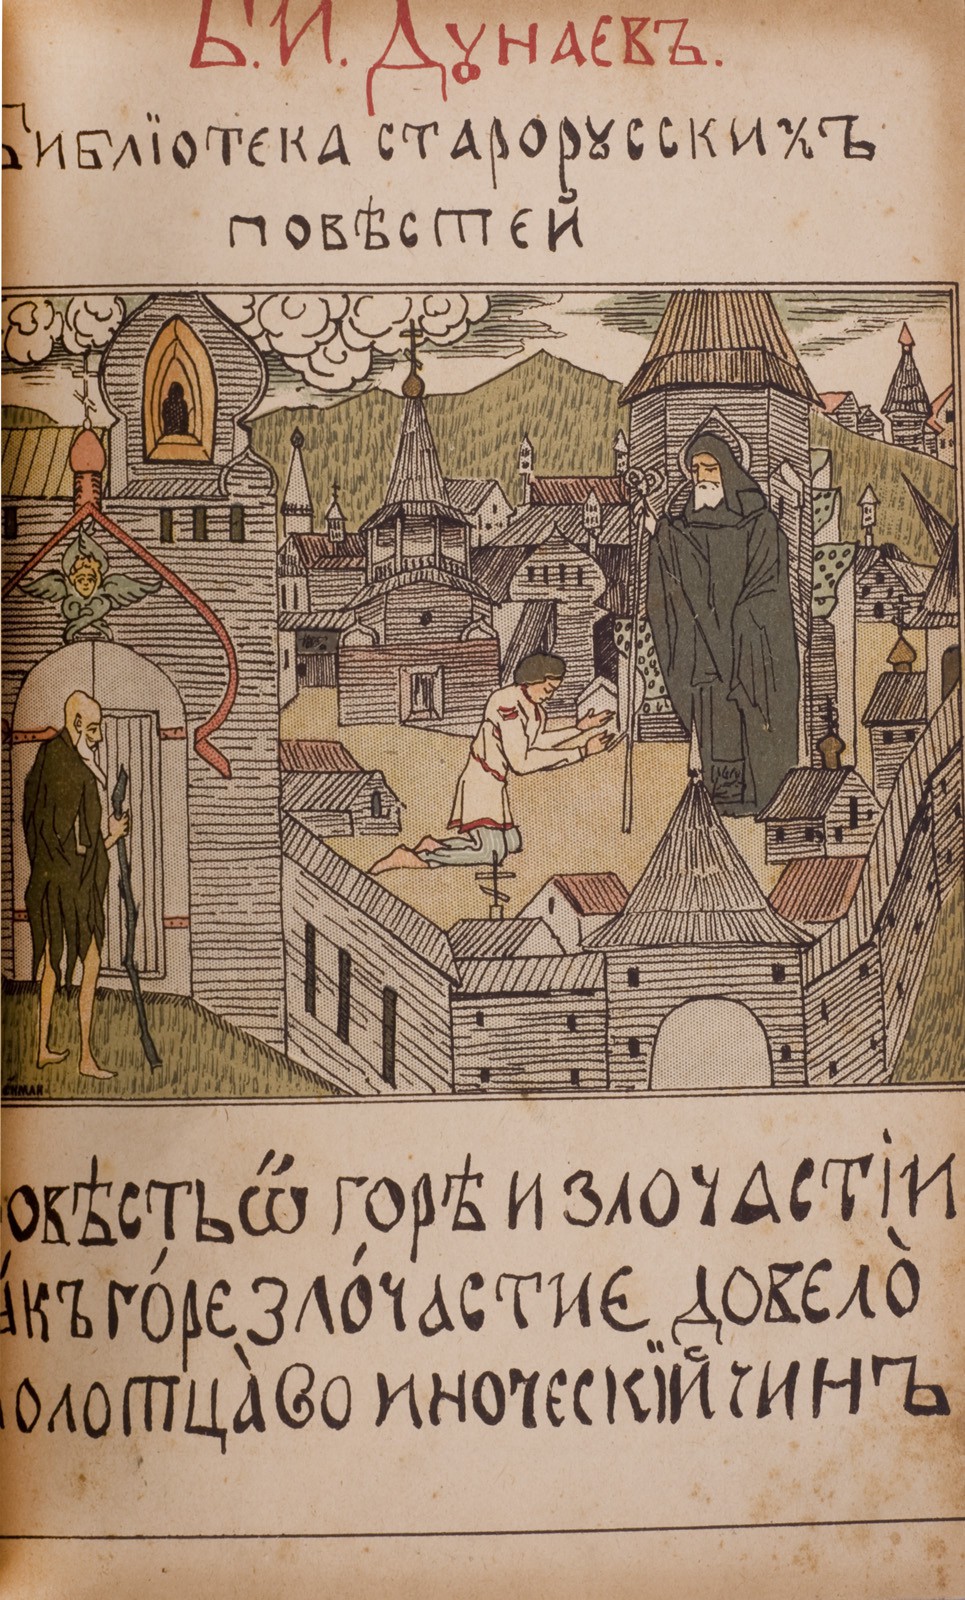 Б. И. Дꙋнаєвъ.
Библїотєка старорꙋсскихъ
повѣстєй
овѣсть ѿ горѣ и злочастіи
а́къ го́рє зло́частиє довєло̀
олотца̀ во иночєскїй чинъ